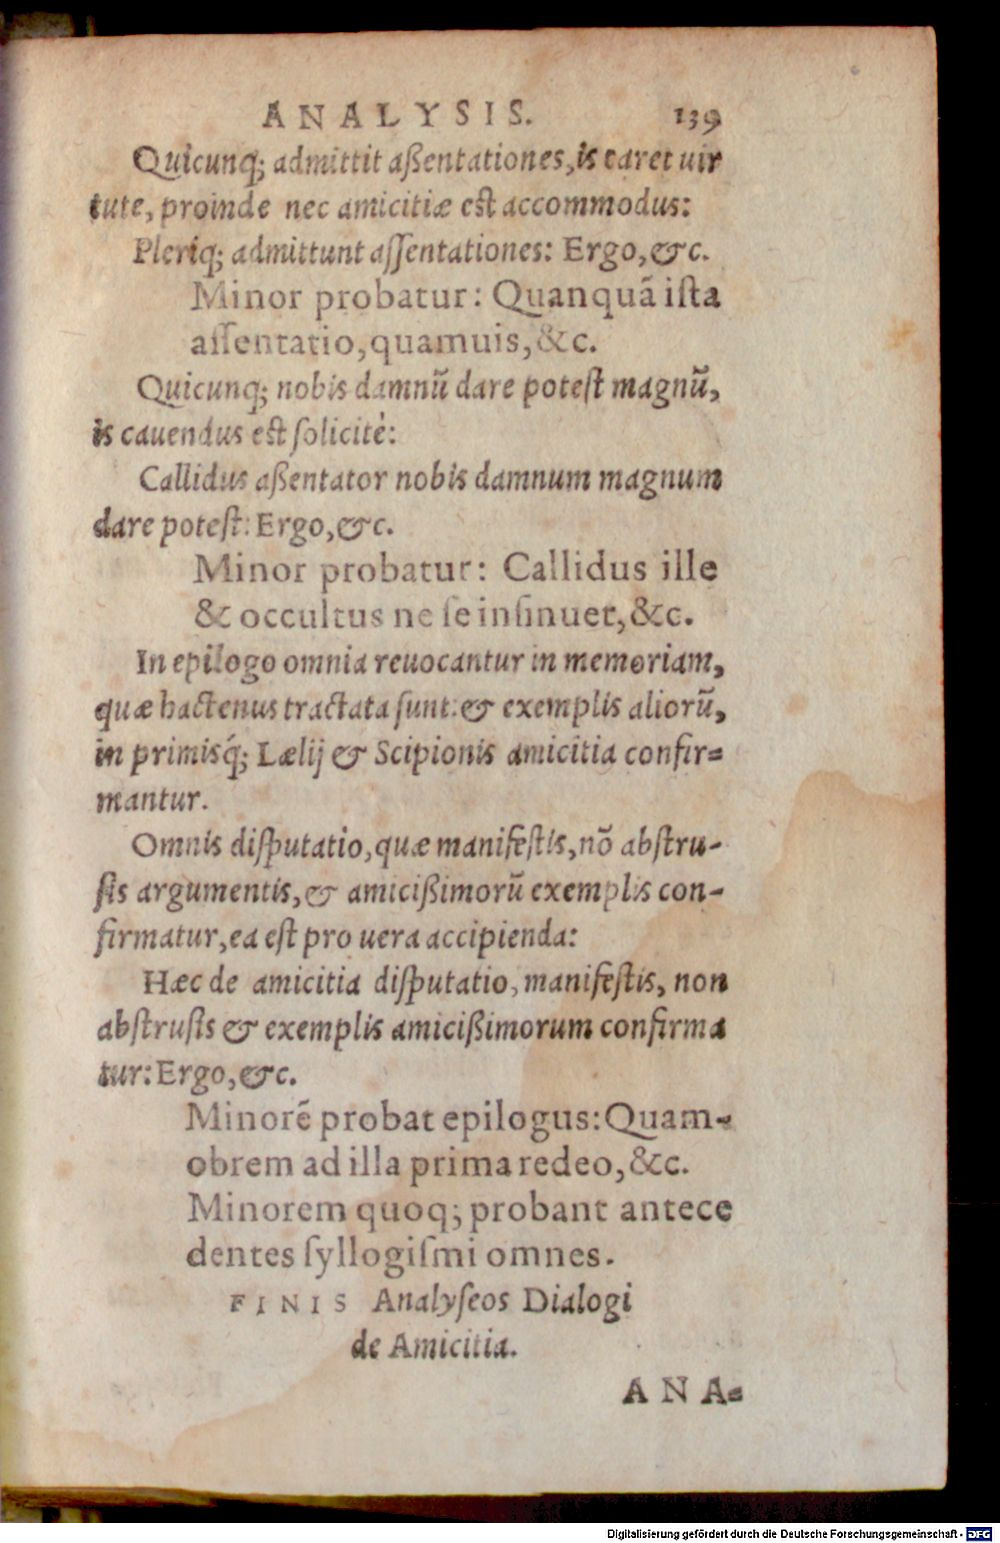 ANALYSIS. 139
Quicunq; admittit aßentationes, is caret uir
tute, proinde nec amicitiæ est accommodus:
Pleriq; admittunt aſſentationes: Ergo, &c.
Minor probatur: Quanquā iſta
aſſentatio, quamuis, &c.
Quicunq; nobis damnū dare poteſt magnū,
is cauendus est ſolicitè:
Callidus aßentator nobis damnum magnum
dare poteſt: Ergo, &c.
Minor probatur: Callidus ille
& occultus ne ſe inſinuet, &c.
In epilogo omnia reuocantur in memoriam,
quæ hactenus tractata ſunt: & exemplis aliorū,
in primisq́; Lælij & Scipionis amicitia confir=
mantur.
Omnis diſputatio, quæ manifeſtis, nō abſtru-
ſis argumentis, & amicißimorū exemplis con-
firmatur, ea eſt pro uera accipienda:
Hæc de amicitia diſputatio, manifeſtis, non
abſtruſis & exemplis amicißimorum confirma
tur: Ergo, &c.
Minorē probat epilogus: Quam-
obrem ad illa prima redeo, &c.
Minorem quoq; probant antece
dentes ſyllogiſmi omnes.
FINIS Analyſeos Dialogi
de Amicitia.
ANA=
Digitalisierung gefördert durch die Deutsche Forschungsgemeinschaft - DFG